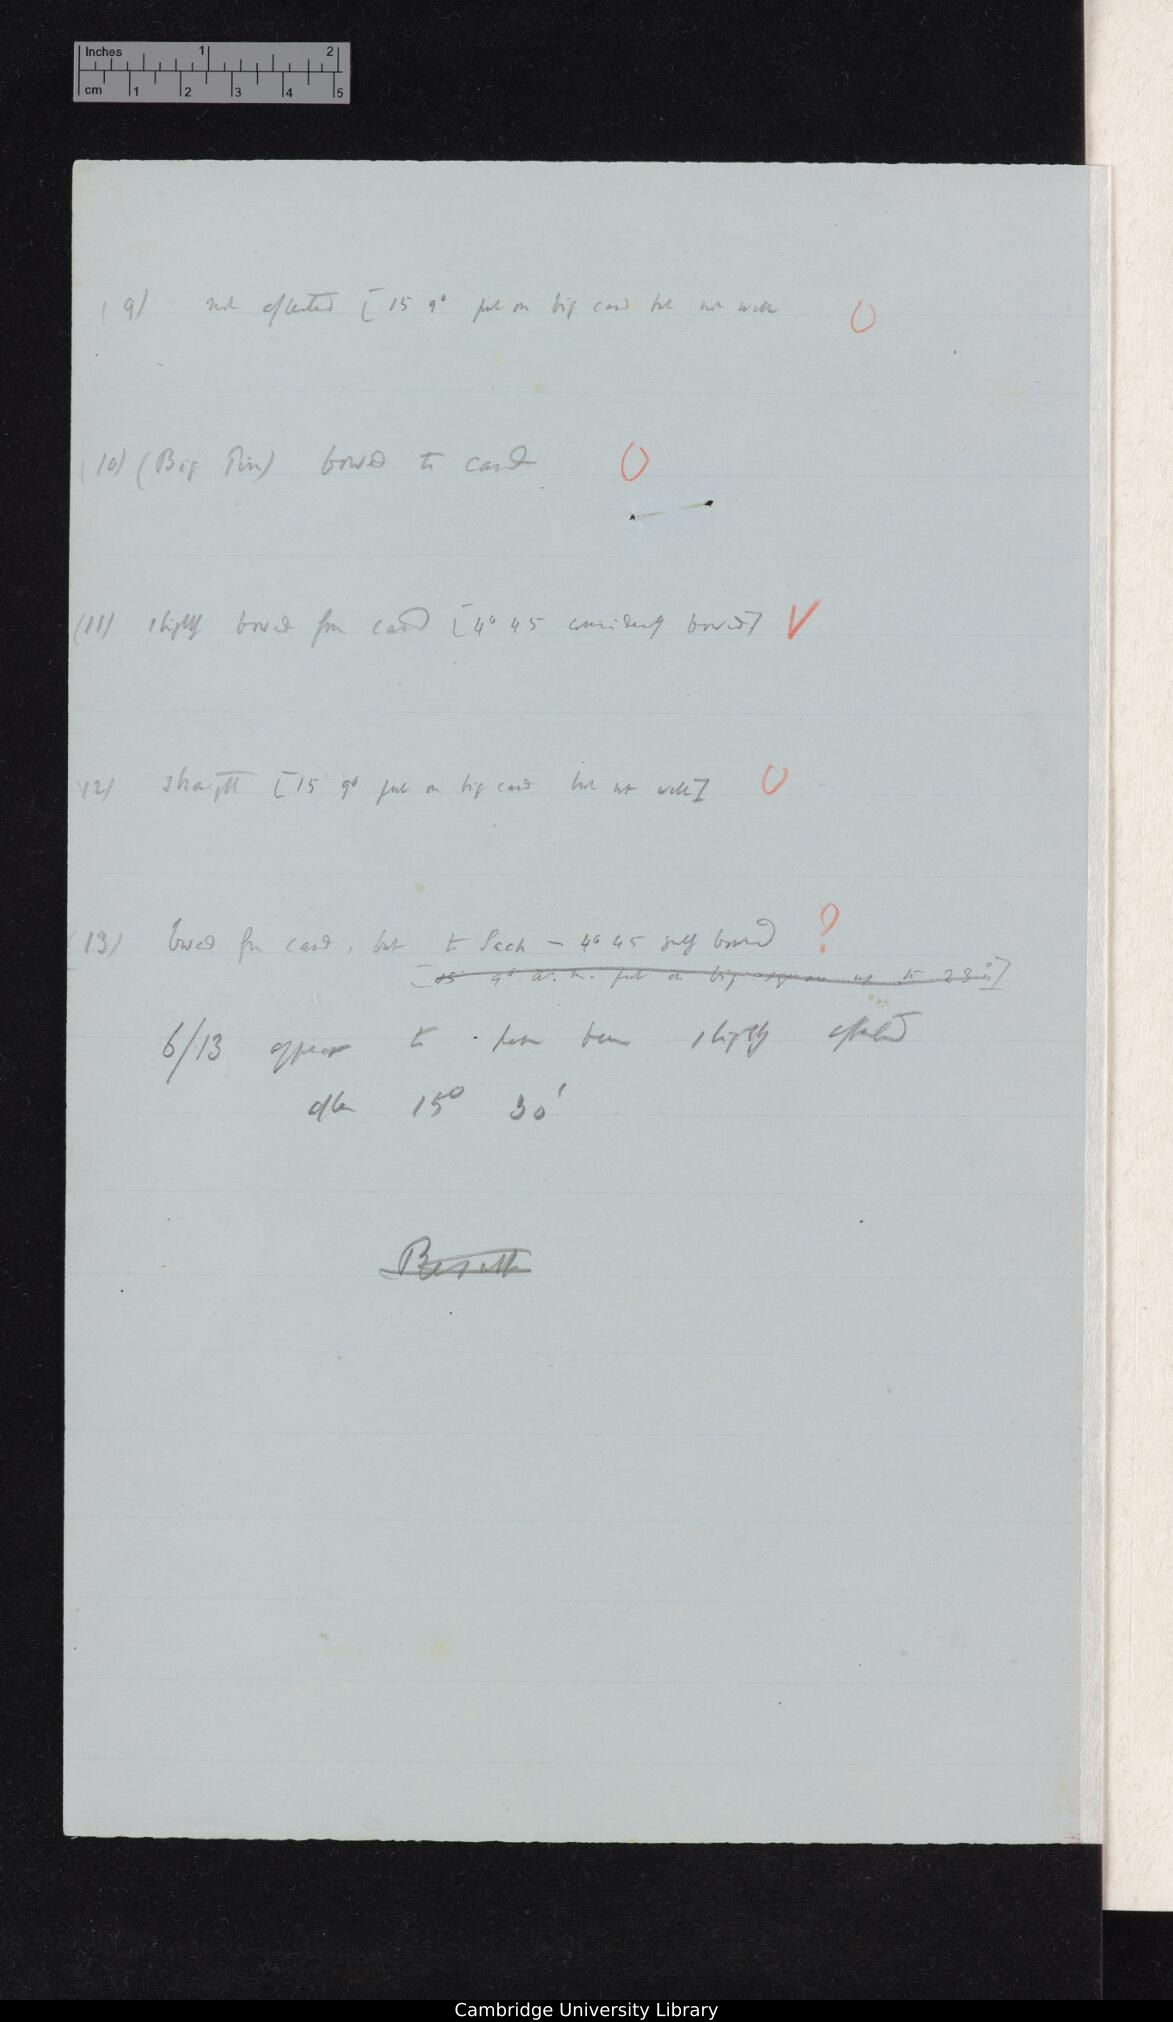 Inches 1 2
cm 1 2 3 4 5
(9) not affected [15 9° put on big card but not well 0
(10) (Big Pin) bowed to card 0
(11) slightly bowed from card [4° 45 considerably bowed] V
(12) straight [15 9° put on big card but not well] 0
(13) bowed from card, but to 4° 45 bowed ?
[15 9° a.m. put on big up to 23°]
6/13 appear to have been slightly affected
after 15° 30'
Cambridge University Library